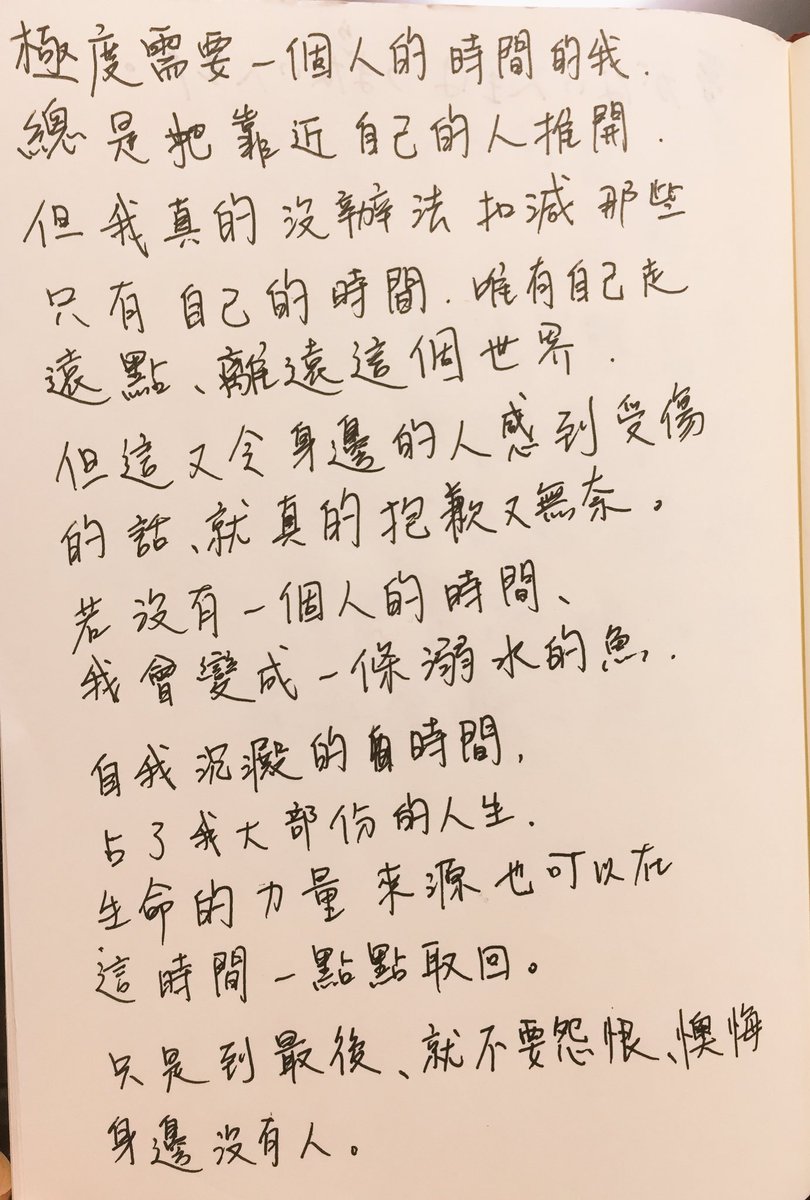 極度需要一個人的時間的我.
總是把靠近自己的人推開.
但我真的沒辦法扣減那些
只有自己的時間.唯有自己走
遠點、離遠這個世界.
但這又令身邊的人感到受傷
的話、就真的抱歉又無奈。
若沒有一個人的時間、
我會變成一條溺水的魚.
自我沉澱的時間,
占了我大部份的人生.
生命的力量來源也可以在
這時間一點點取回。
只是到最後、就不要怨恨、懊悔
身邊沒有人。